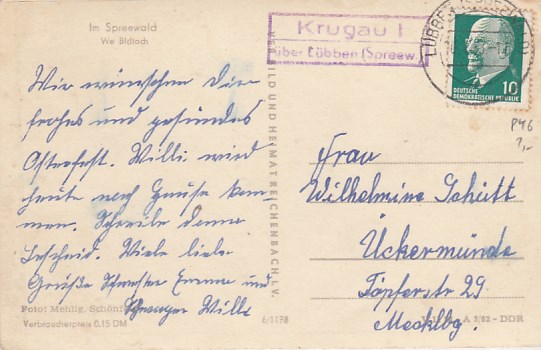 Im Spreewald
We Bldtoch
Krugau I
über Lübben (Spreew.)
LÜBBEN
10
DEUTSCHE
DEMOKRATISCHE REPUBLIK
P46
?,-
Wir wünschen Dir
frohes und gesundes
Osterfest. Willi wird
heute nach Hause kom-
men. Schreibe dann
Bescheid. Viele liebe
Grüße Schwester Emma und
Schwager Willi
VERB BILD UND HEIMAT REICHENBACH I. V.
Frau
Wilhelmine Schütt
Ückermünde
Töpferstr 29
Mecklbg.
Foto: Mehlig, Schönf
Verbraucherpreis 0,15 DM
6/1178
A 3/62 - DDR